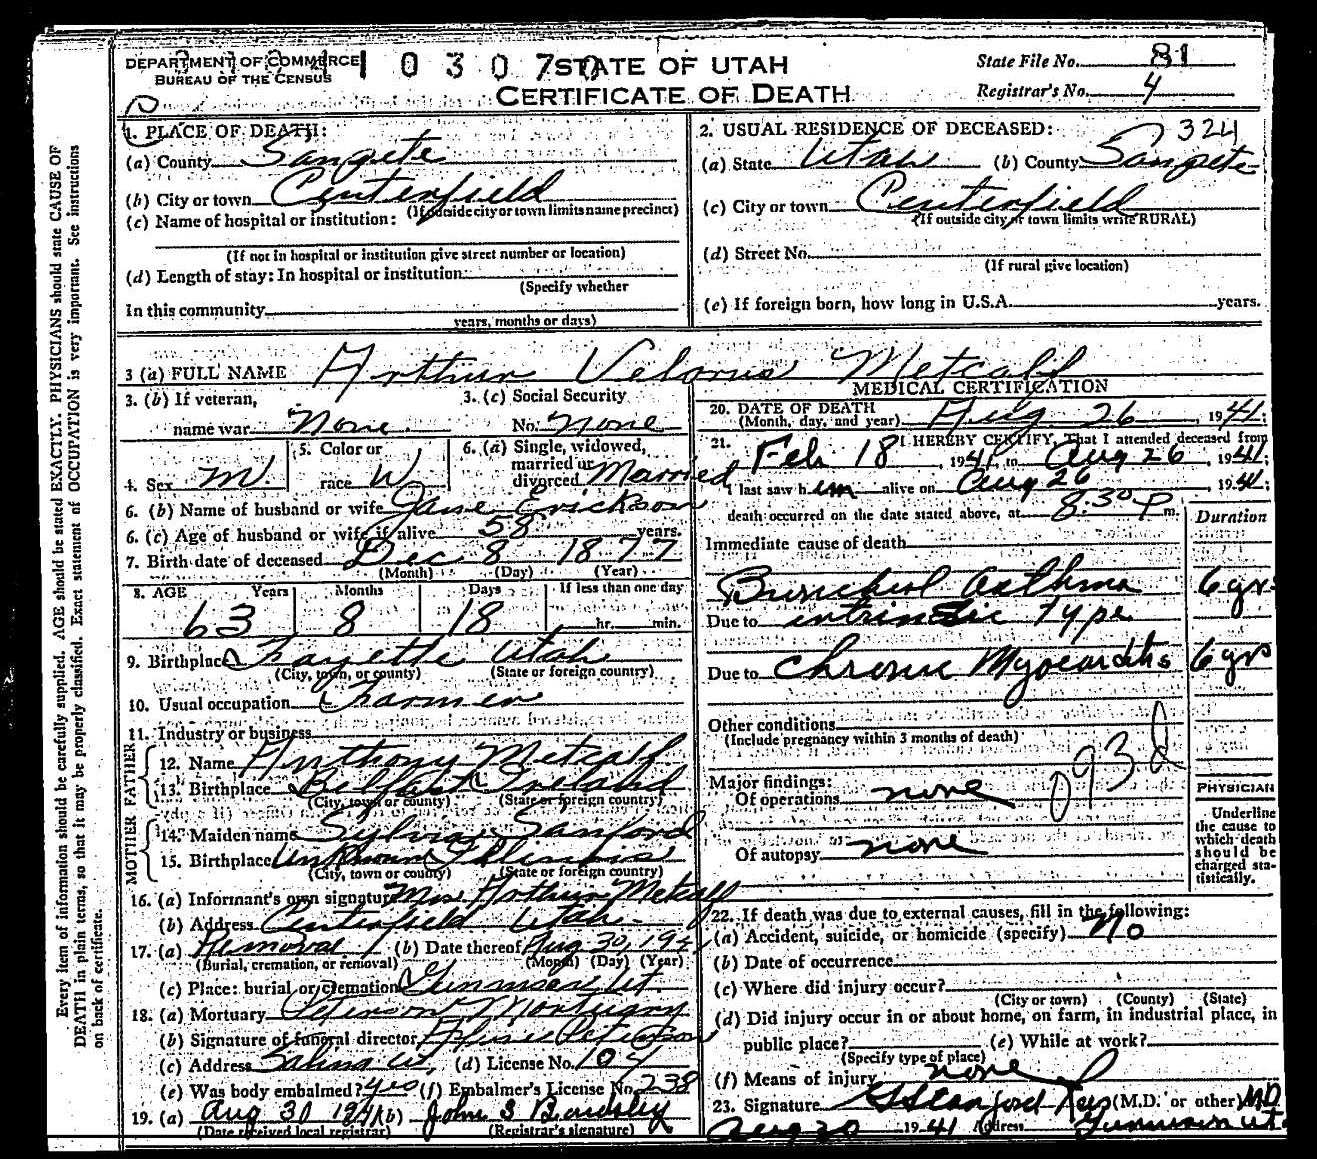 DEPARTMENT OF COMMERCE
BUREAU OF THE CENSUS
1 0 3 0 7
STATE OF UTAH
CERTIFICATE OF DEATH
State File No. 81
Registrar's No. 4
1. PLACE OF DEATH:
(a) County Sanpete
(b) City or town Centerfield
(If outside city or town limits name precinct)
(c) Name of hospital or institution:
(If not in hospital or institution give street number or location)
(d) Length of stay: In hospital or institution
(Specify whether
In this community
years, months or days)
2. USUAL RESIDENCE OF DECEASED: 324
(a) State Utah (b) County Sanpete
(c) City or town Centerfield
(If outside city or town limits write RURAL)
(d) Street No.
(If rural give location)
(e) If foreign born, how long in U.S.A. years.
3 (a) FULL NAME Arthur Velorus Metcalf
3. (b) If veteran,
name war None
3. (c) Social Security
No. None
4. Sex M
5. Color or
race W
6. (a) Single, widowed,
married or
divorced Married
6. (b) Name of husband or wife Jane Erickson
6. (c) Age of husband or wife if alive 58 years.
7. Birth date of deceased Dec 8 1877
(Month) (Day) (Year)
8. AGE Years Months Days If less than one day
63 8 18 hr. min.
9. Birthplace Fayette Utah
(City, town, or county) (State or foreign country)
10. Usual occupation Farmer
11. Industry or business
FATHER
12. Name Anthony Metcalf
13. Birthplace Belfast Ireland
(City, town or county) (State or foreign country)
MOTHER
14. Maiden name Sylvia Sanford
15. Birthplace Unknown Illinois
(City, town or county) (State or foreign country)
16. (a) Informant's own signature Mrs Arthur Metcalf
(b) Address Centerfield Utah
17. (a) Removal (b) Date thereof Aug 30, 1941
(Burial, cremation, or removal) (Month) (Day) (Year)
(c) Place: burial or cremation Gunnison Ut.
18. (a) Mortuary Peterson Mortuary
(b) Signature of funeral director Peterson
(c) Address Salina Ut. (d) License No. 104
(e) Was body embalmed? yes (f) Embalmer's License No. 238
19. (a) Aug 30 1941 (b) John S Beardsley
(Date received local registrar) (Registrar's signature)
MEDICAL CERTIFICATION
20. DATE OF DEATH
(Month, day, and year) Aug 26, 1941;
21. I HEREBY CERTIFY, That I attended deceased from
Feb 18, 1941, to Aug 26, 1941;
I last saw him alive on Aug 26, 1941;
death occurred on the date stated above, at 8:30 P m.
Duration
Immediate cause of death
Bronchial Asthma 6 yrs.
Due to intrinsic type
Due to Chronic Myocarditis 6 yrs
Other conditions
(Include pregnancy within 3 months of death)
093d
Major findings:
Of operations none
Of autopsy none
PHYSICIAN
Underline
the cause to
which death
should be
charged sta-
tistically.
22. If death was due to external causes, fill in the following:
(a) Accident, suicide, or homicide (specify) No
(b) Date of occurrence
(c) Where did injury occur?
(City or town) (County) (State)
(d) Did injury occur in or about home, on farm, in industrial place, in
public place? (e) While at work?
(Specify type of place)
(f) Means of injury none
23. Signature G Stanford Rees (M.D. or other) MD
Aug 30 1941 Address Gunnison Ut.
Every item of information should be carefully supplied. AGE should be stated EXACTLY. PHYSICIANS should state CAUSE OF
DEATH in plain terms, so that it may be properly classified. Exact statement of OCCUPATION is very important. See instructions
on back of certificate.